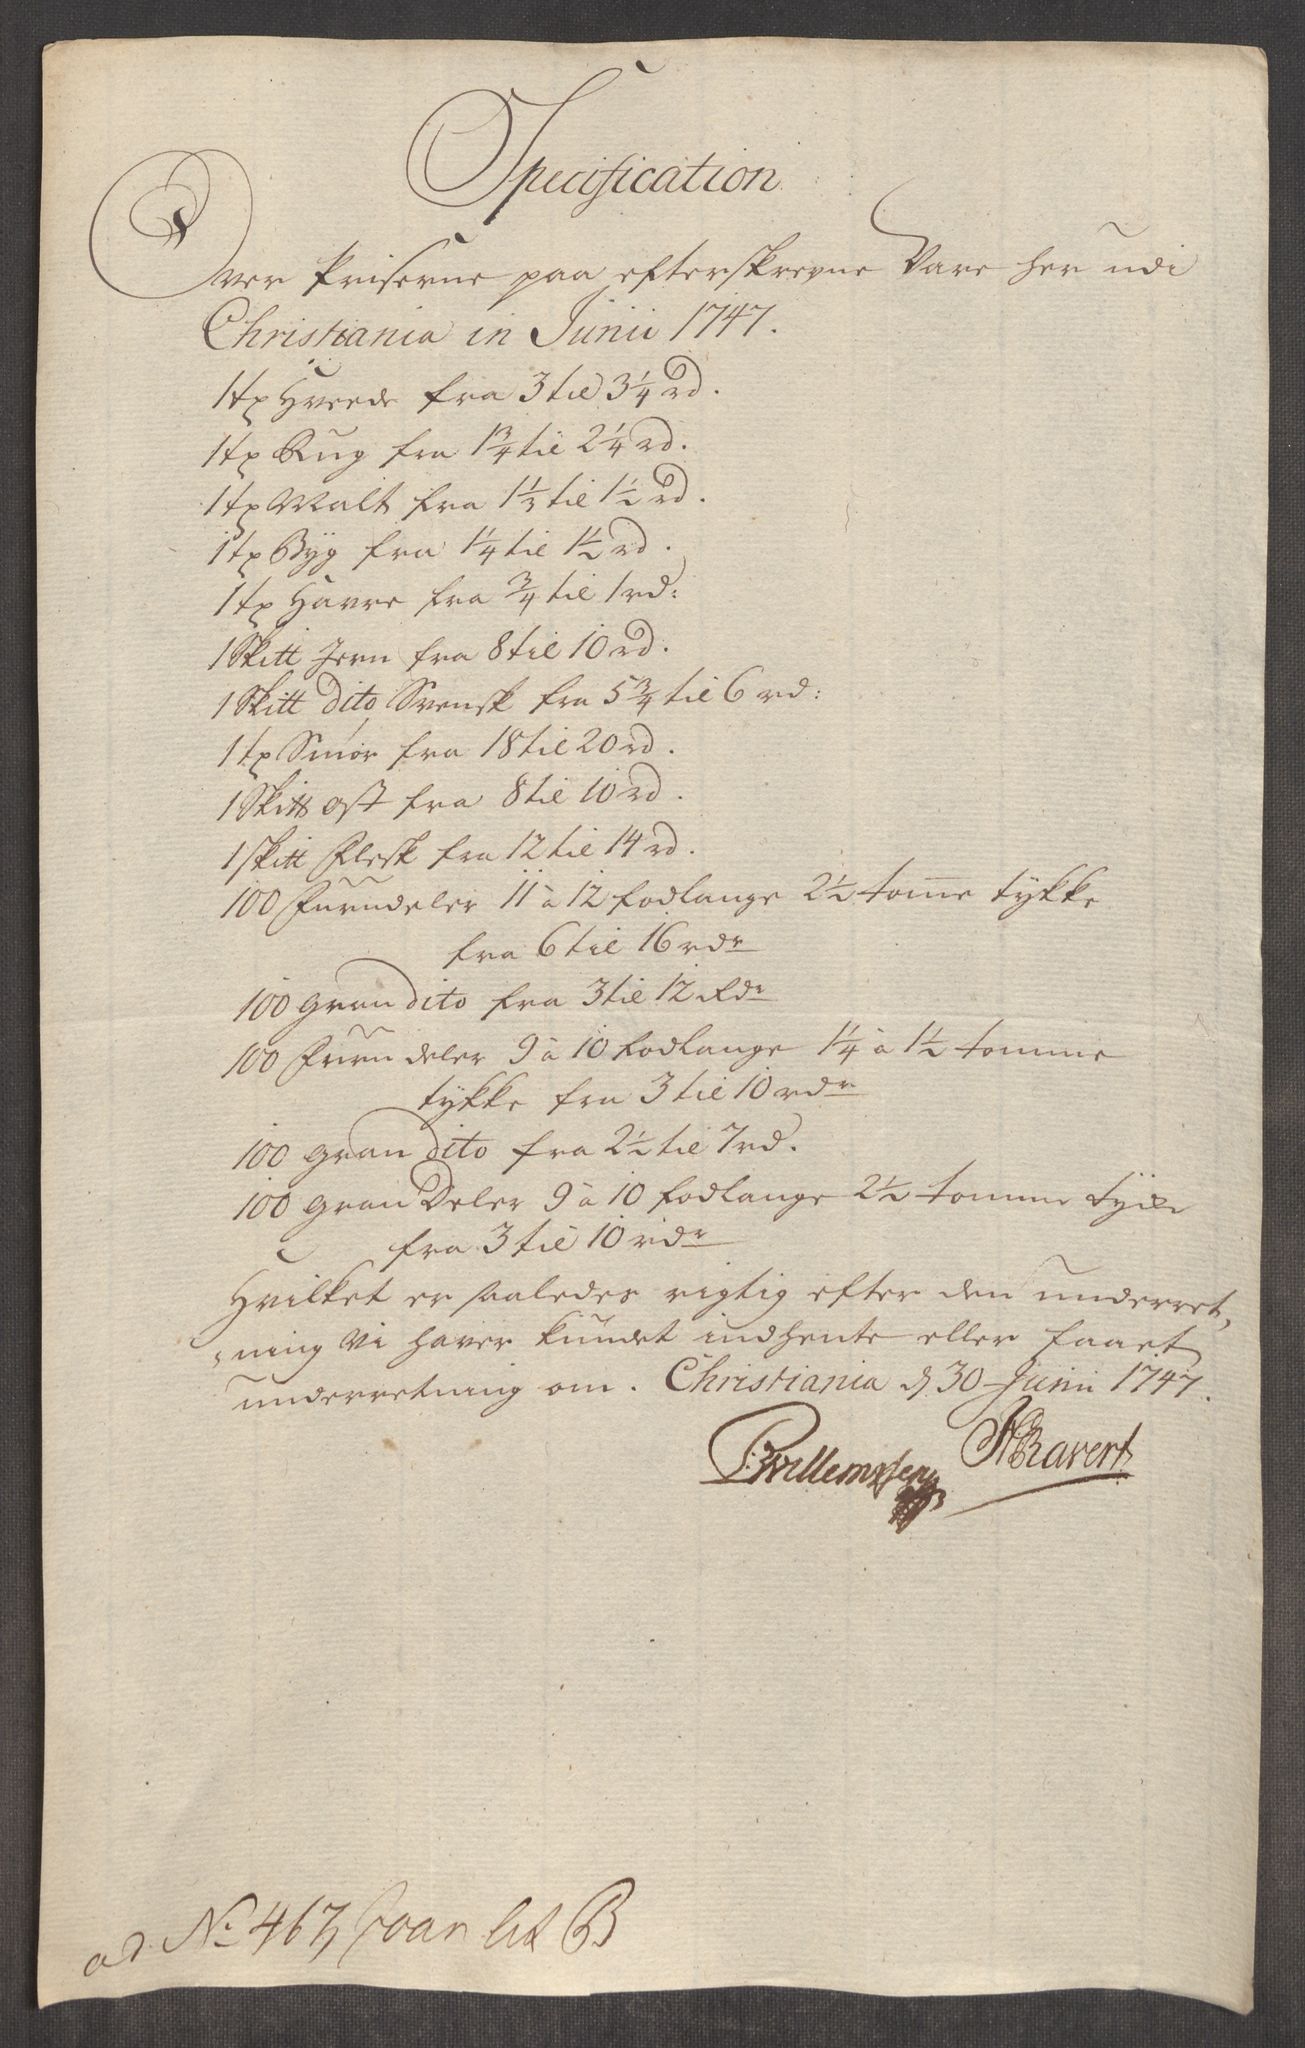 Specification
Over Priserne paa efterskrevne Vare her udi
Christiania in Junii 1747.
1 tø Hveede fra 3 til 3 1/4 rd.
1 tø Rug fra 1 3/4 til 2 1/4 rd.
1 tø Malt fra 1 1/3 til 1 1/2 rd.
1 tø Byg fra 1 1/4 til 1 1/2 rd.
1 tø Havre fra 3/4 til 1 rd:
1 Skitt Jern fra 8 til 10 rd.
1 Skitt dito Svensk fra 5 3/4 til 6 rd:
1 tø Smør fra 18 til 20 rd.
1 Skitt ost fra 8 til 10 rd.
1 skitt Flesk fra 12 til 14 rd.
100 Furudeler 11 à 12 fodlange 2 1/2 tom̄e tykke
fra 6 til 16 rdr
100 gran dito fra 3 til 12 Rdr
100 Furu deler 9 à 10 fodlange 1 1/4 à 1 1/2 tomme
tykke fra 3 til 10 rdr
100 gran dito fra 2 1/2 til 7 rd.
100 gran Deler 9 à 10 fodlange 2 1/2 tomme
fra 3 til 10 rdr
Hvilket er saaledes rigtig efter den underret,
,ning vi haver kundet indhente eller faaet
underretning om. Christiania d 30 Junii 1747.
Pwillemssen HRavert
ad No 467 lit B